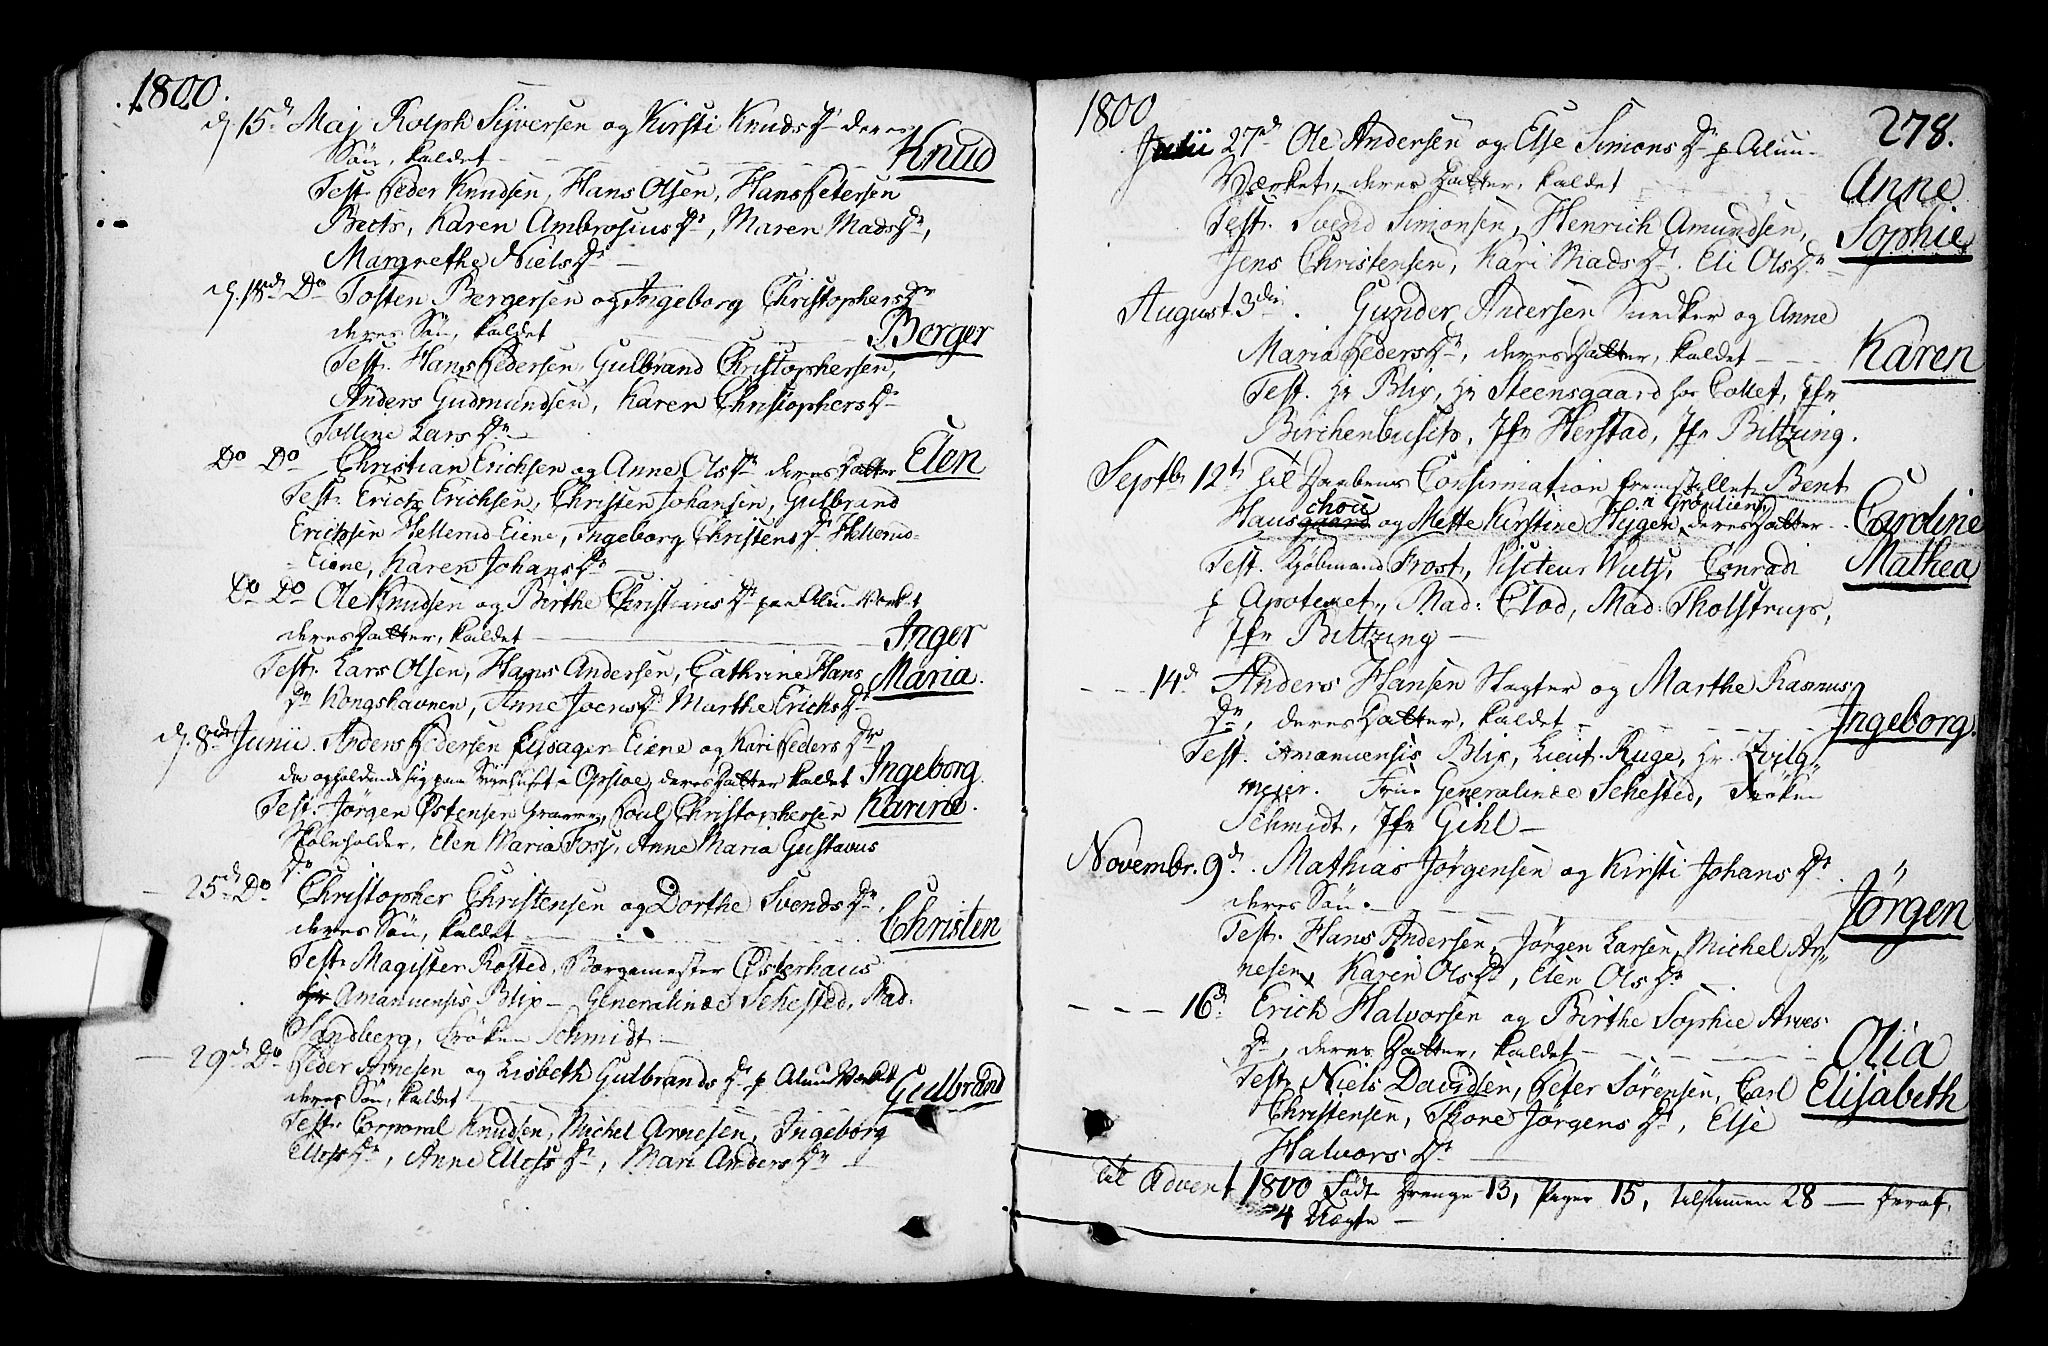 1800.
d. 15d Maj Rolph Sijversen og Kirsti Knuds Dr deres
Søn, kaldet - Knud
Test. Peder Knudsen, Hans Olsen, Hans Petersen
Karen Ambrosius Dr, Maren Mads Dr,
Margrethe Niels Dr
d. 18d Do Tosten Bergersen og Ingeborg Christophers Dr
deres Søn, kaldet Berger
Test. Hans Pedersen, Gulbrand Christophersen,
Anders Gudmundsen, Karen Christophers Dr
Lars Dr
Do Do Christian Erichsen og Anne Ols Dr deres Datter Elen
Test. Erich Erichsen, Christen Johansen, Gulbrand
Erichsen Hellerud Eiene, Ingeborg Christens Dr Hellerud-
Eiene, Karen Johans Dr
Do Do Ole Knudsen og Birthe Christians Dr paa Alun Værket
deres Datter, kaldet - Inger
Test. Lars Olsen, Hans Andersen, Cathrine Hans Maria.
Dr Kongshavnen, Anne Joens Dr Marthe Erichs Dr
d. 8de Junii. Anders Pedersen Eiene og Kari Peders Dr
opholdende sig paa Opsloe, deres Datter kaldet Ingeborg
Test. Jørgen Østensen Poul Christophersen Karine.
Skoleholder, Elen Maria Fosj, Anne Maria Gustavus
Dr
- 25d Do Christopher Christensen og Dorthe Svends Dr,
deres Søn, kaldet - Christen
Test. Magister Rosted, Borgemester Østerhaus
Amanuensis Blix - Generalinde Sehested, Mad.
Sandberg, Frøken Schmidt -
- 29d Do Peder Arnesen og Lisbeth Gulbrands Dr p Alun Værket
deres Søn, kaldet Gulbrand
Test. Corporal Knudsen, Michel Arnesen, Ingeborg
Dr, Anne Dr, Mari Anders Dr
1800 278.
Julii 27d Ole Andersen og Else Simons Dr p Alun-
Værket, deres Datter, kaldet Anne
Test. Svend Simonsen, Henrich Amundsen, Sophie
Jens Christensen, Kari Mads Dr. Eli Ols Dr
August 3die. Gunder Andersen Snedker og Anne
Maria Peders Dr, deres Datter, kaldet - - - Karen
Test. Hr Blix, Hr Steensgaard hos Collet, Jfr
Birchenbusch, Jfr Herstad, Jfr Biltzing.
Septbr 12t Til Daabens Confirmation fremstillet Bent
chou i Grønlien
Hausgaard og Mette Kirstine Hygen, deres Datter - Caroline
Test. Kjøbmand Frost, Visiteur Wulf, Conradi Mathea
p Apoteket, Mad: Clod, Mad: Tholstrup,
Jfr Biltzing -
- - - 14d. Anders Hansen Slagter og Marthe Rasmus
Dr, deres Datter, kaldet - Ingeborg.
Test. Amanuensis Blix, Lieut. Ruge, Hr. Zvilg-
meier. Frue Generalinde Sehested, Frøken
Schmidt, Jfr Gihl -
Novembr. 9d. Mathias Jørgensen og Kirsti Johans Dr
deres Søn. - Jørgen
Test. Hans Andersen, Jørgen Larsen, Michel Ar-
nesen, Karen Ols Dr, Elen Ols Dr
- - - 16d. Erich Halvorsen og Birthe Sophie Arves
Dr, deres Datter, kaldet - Olia
Test. Niels Davidsen, Peter Sørensen, Carl Elisabeth
Christensen, Thore Jørgens Dr, Else
Halvors Dr
Til Advent 1800 Født Drenge 13, Piger 15, tilsammen 28 - hvoraf
4 Uægte -